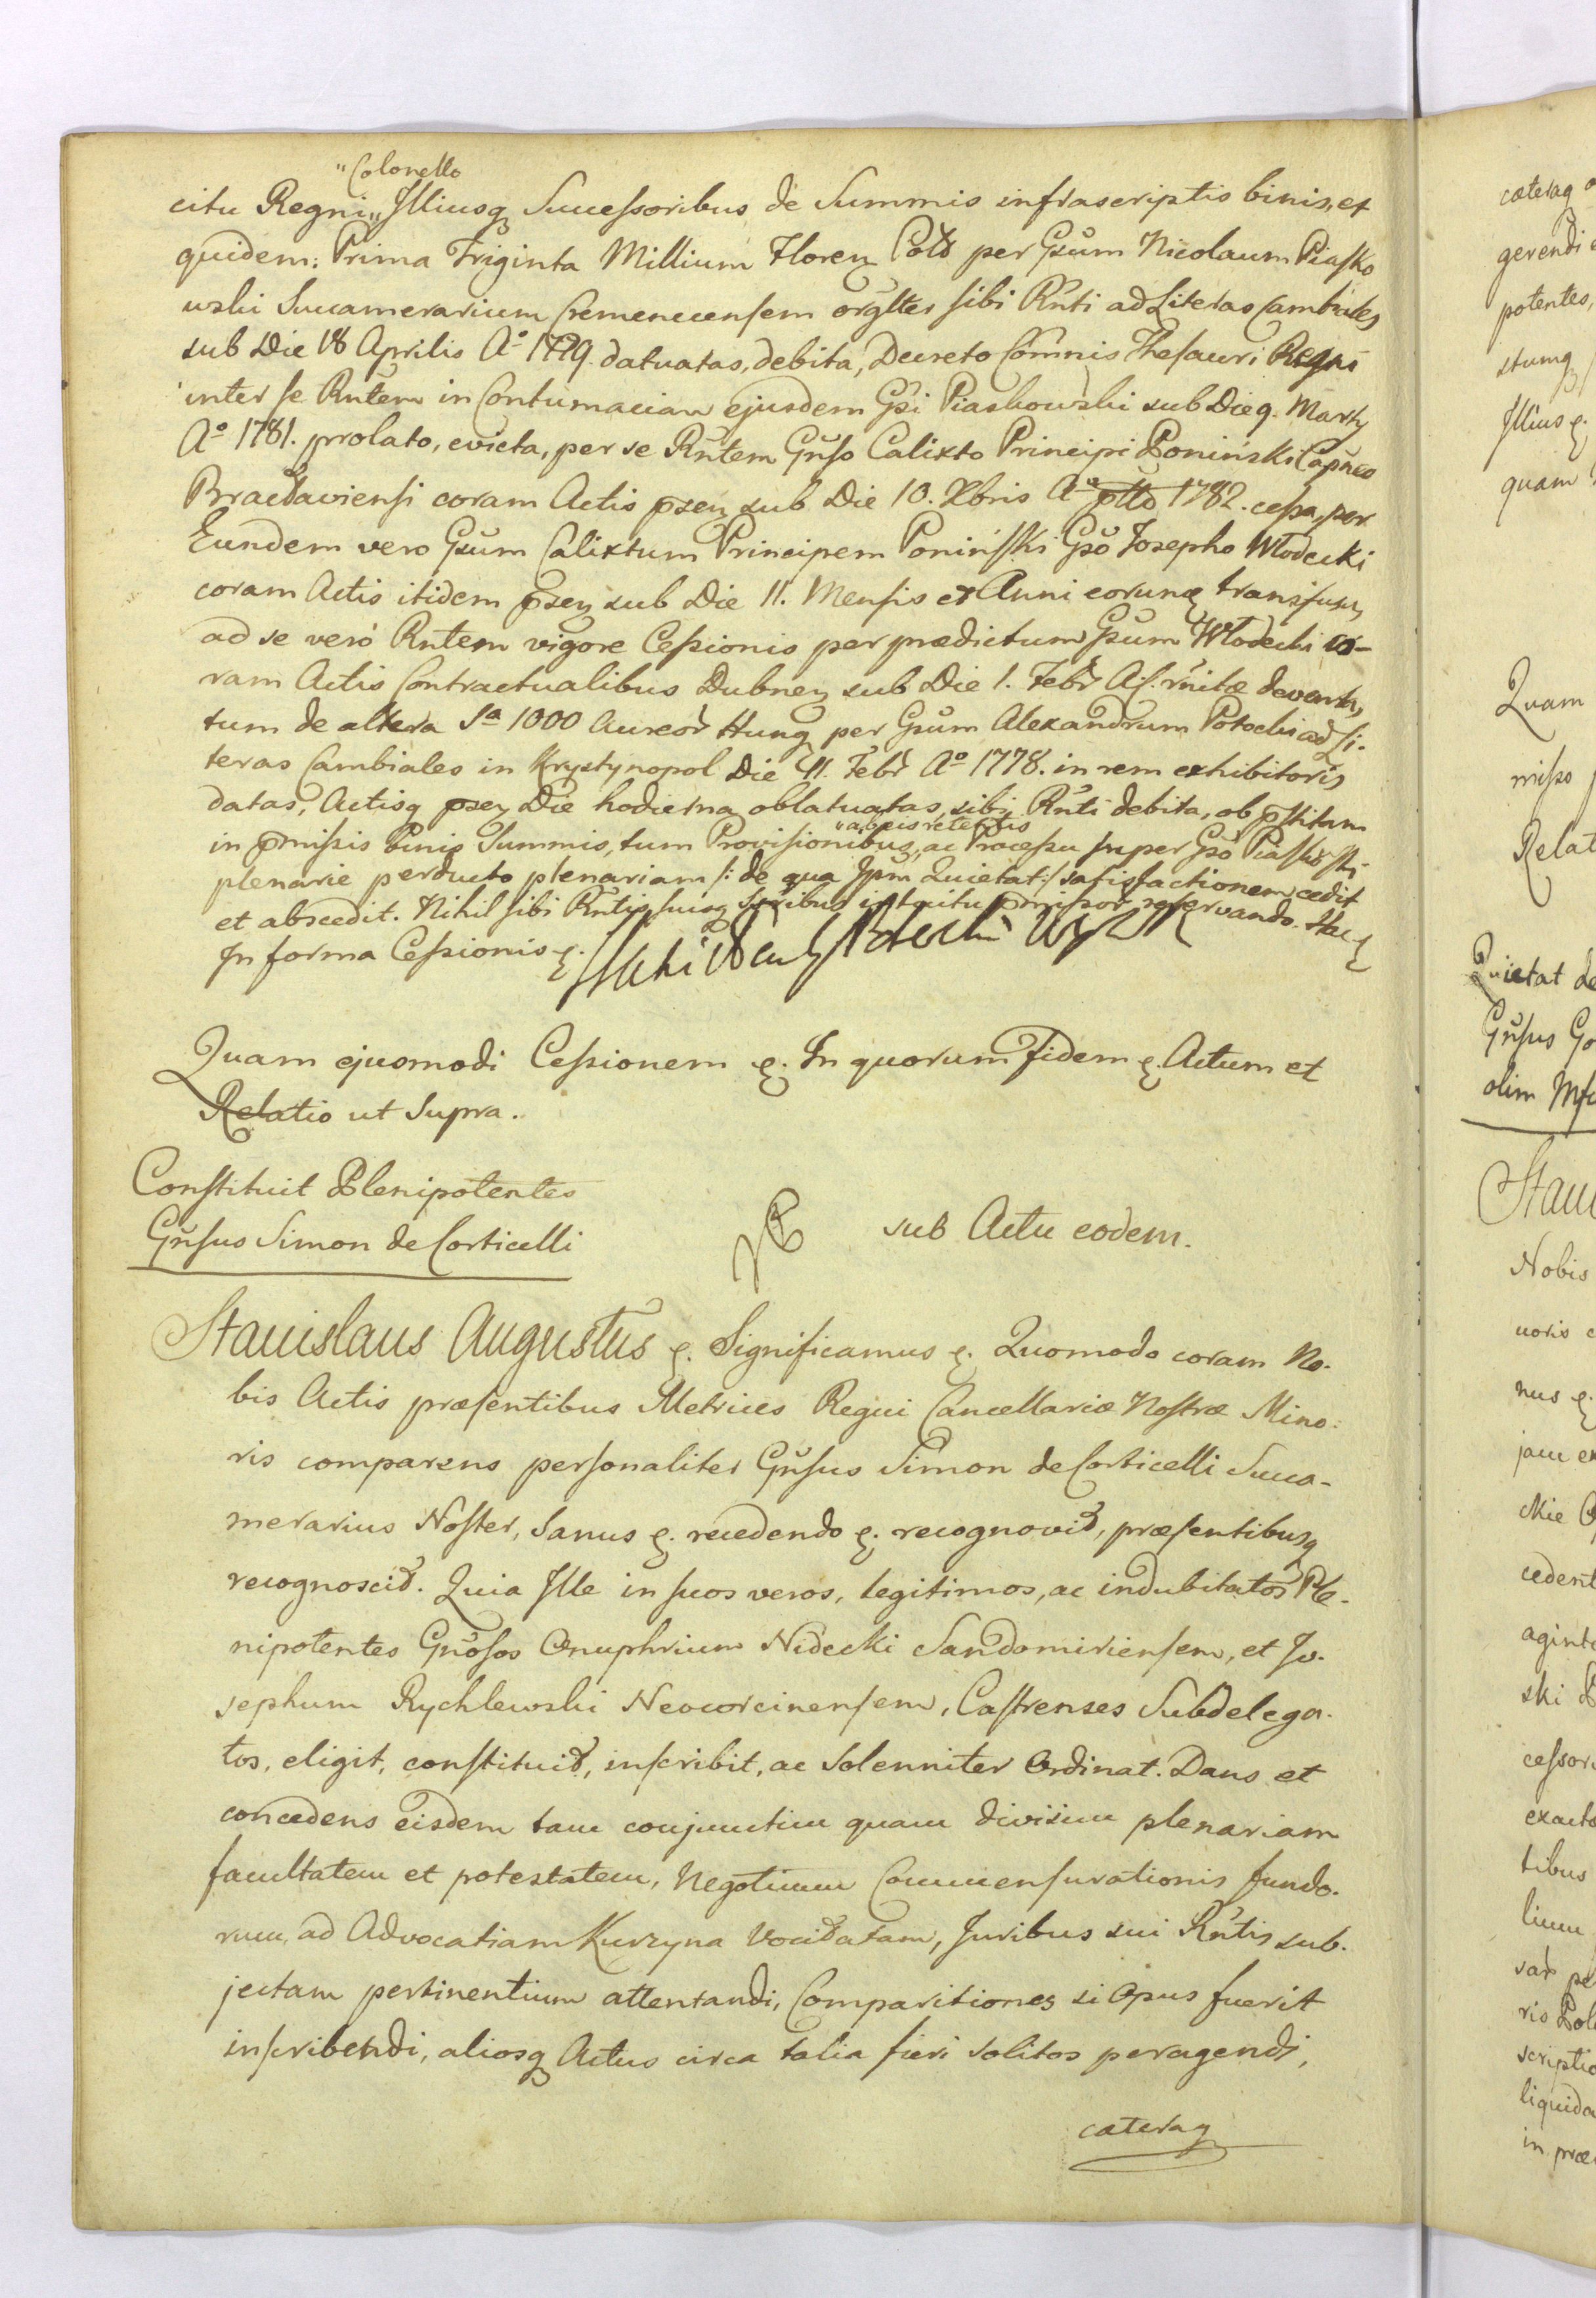 "Colonello
citu Regni,, Illiusq Successoribus de Summis infrascriptis binis, et
quidem: Prima Triginta Millium Floren Pold per Gsum Nicolaum Piasko
wski Succamerarium Cremenecensem orgltes sibi Rnti ad Literas Cambiales
sub Die 18 Aprilis Ao 1779. datuatas, debita, Decreto Comnis Thesauri Regni
inter se Rntem in Contumaciam ejusdem Gsi Piaskowski sub Die 9. Marty
Ao 1781. prolato, evicta, per se Rntem Gnso Calixto Principi Poniński Capneo
Bracłaviensi coram Actis psen sub Die 10. Xbris Ao ptto 1782. cessa, per
Eundem vero Gsum Calixtum Principem Poniński Gso Josepho Włodecki
coram Actis itidem psen sub Die 11. Mensis et Anni eorunq transfusa,
ad se vero Rntem vigore Cessionis per prædictum Gsum Włodecki co-
ram Actis Contractualibus Dubnen sub Die 1. Febr A. rnitæ devoluta,
tum de altera Sa 1000 Aureor Hung per Gsum Alexandrum Potocki ad Li-
teras Cambiales in Krystynopol Die 11. Febr Ao 1778. in rem exhibitoris
datas, Actisq psen Die hodierna oblatuatas, sibi Rnti debita, ob pstitam
"ab eis retentis
in pmissis binis Summis, tum Provisionibus,, ac Processu super Gso Piaskowski
plenarie perducto plenariam /: de qua Ipm Quietat :/ satisfactionem cedit
et abscedit. Nihil sibi Rntis suisq Sribus intuitu pmissor reservando. Hac
In forma Cessionis

Quam ejusmodi Cessionem &. In quorum Fidem &. Actum et
Relatio ut Supra.

Constituit Plenipotentes
Gnsus Simon de Corticelli
sub Actu eodem.

Stanislaus Augustus &. Significamus &. Quomodo coram No-
bis Actis præsentibus Metrices Regni Cancellariæ Nostræ Mino-
ris comparens personaliter Gnsus Simon de Corticelli Succa-
merarius Noster, Sanus &. recedendo &. recognovit, præsentibusq
recognoscit. Quia Ille in suos veros, legitimos, ac indubitatos Ple-
nipotentes Gnosos Onuphrium Nidecki Sandomiriensem, et Jo-
sephum Rychlewski Neocorcinensem, Castrenses Subdelega-
tos, eligit, constituit, inscribit, ac Solenniter Ordinat. Dans et
concedens eisdem tam conjunctim quam divisim plenariam
facultatem et potestatem, Negotium Commensurationis fundo-
rum, ad Advocatiam Kurzyna Vocitatam, Juribus sui Rntis sub-
jectam pertinentium attentandi, Comparitiones si opus fuerit
inscribendi, aliosq Actus circa talia fieri solitos peragendi,
cæteraq

cæteraq
gerendi
potentes,
stumq
Illius &.
quam
Quam
misso
Relat
Quietat de
Gnsus Go
olim
Stani
Nobis
noris
nus &.
jam ex
ckie
cedent
agint
ski
cessor
exacto
tibus
lium
var pe
ris Pol
scriptio
liquida
in præ